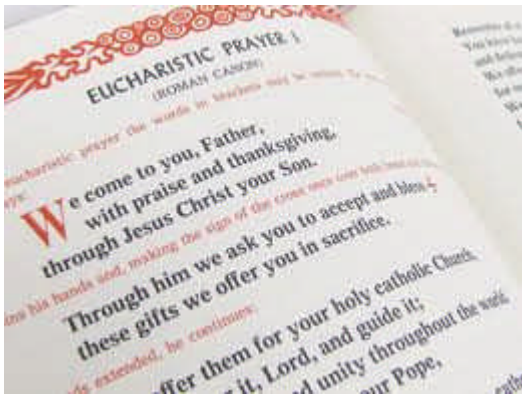 EUCHARISTIC PRAYER I
(ROMAN CANON)
eucharistic prayer the words in brackets may be
We come to you, Father,
with praise and thanksgiving,
through Jesus Christ your Son.
his hands and, making the sign of the cross once over both bread and
Through him we ask you to accept and bless
these gifts we offer you in sacrifice.
extended, he continues:
offer them for your holy catholic Church,
it, Lord, and guide it;
unity throughout the world.
our Pope,